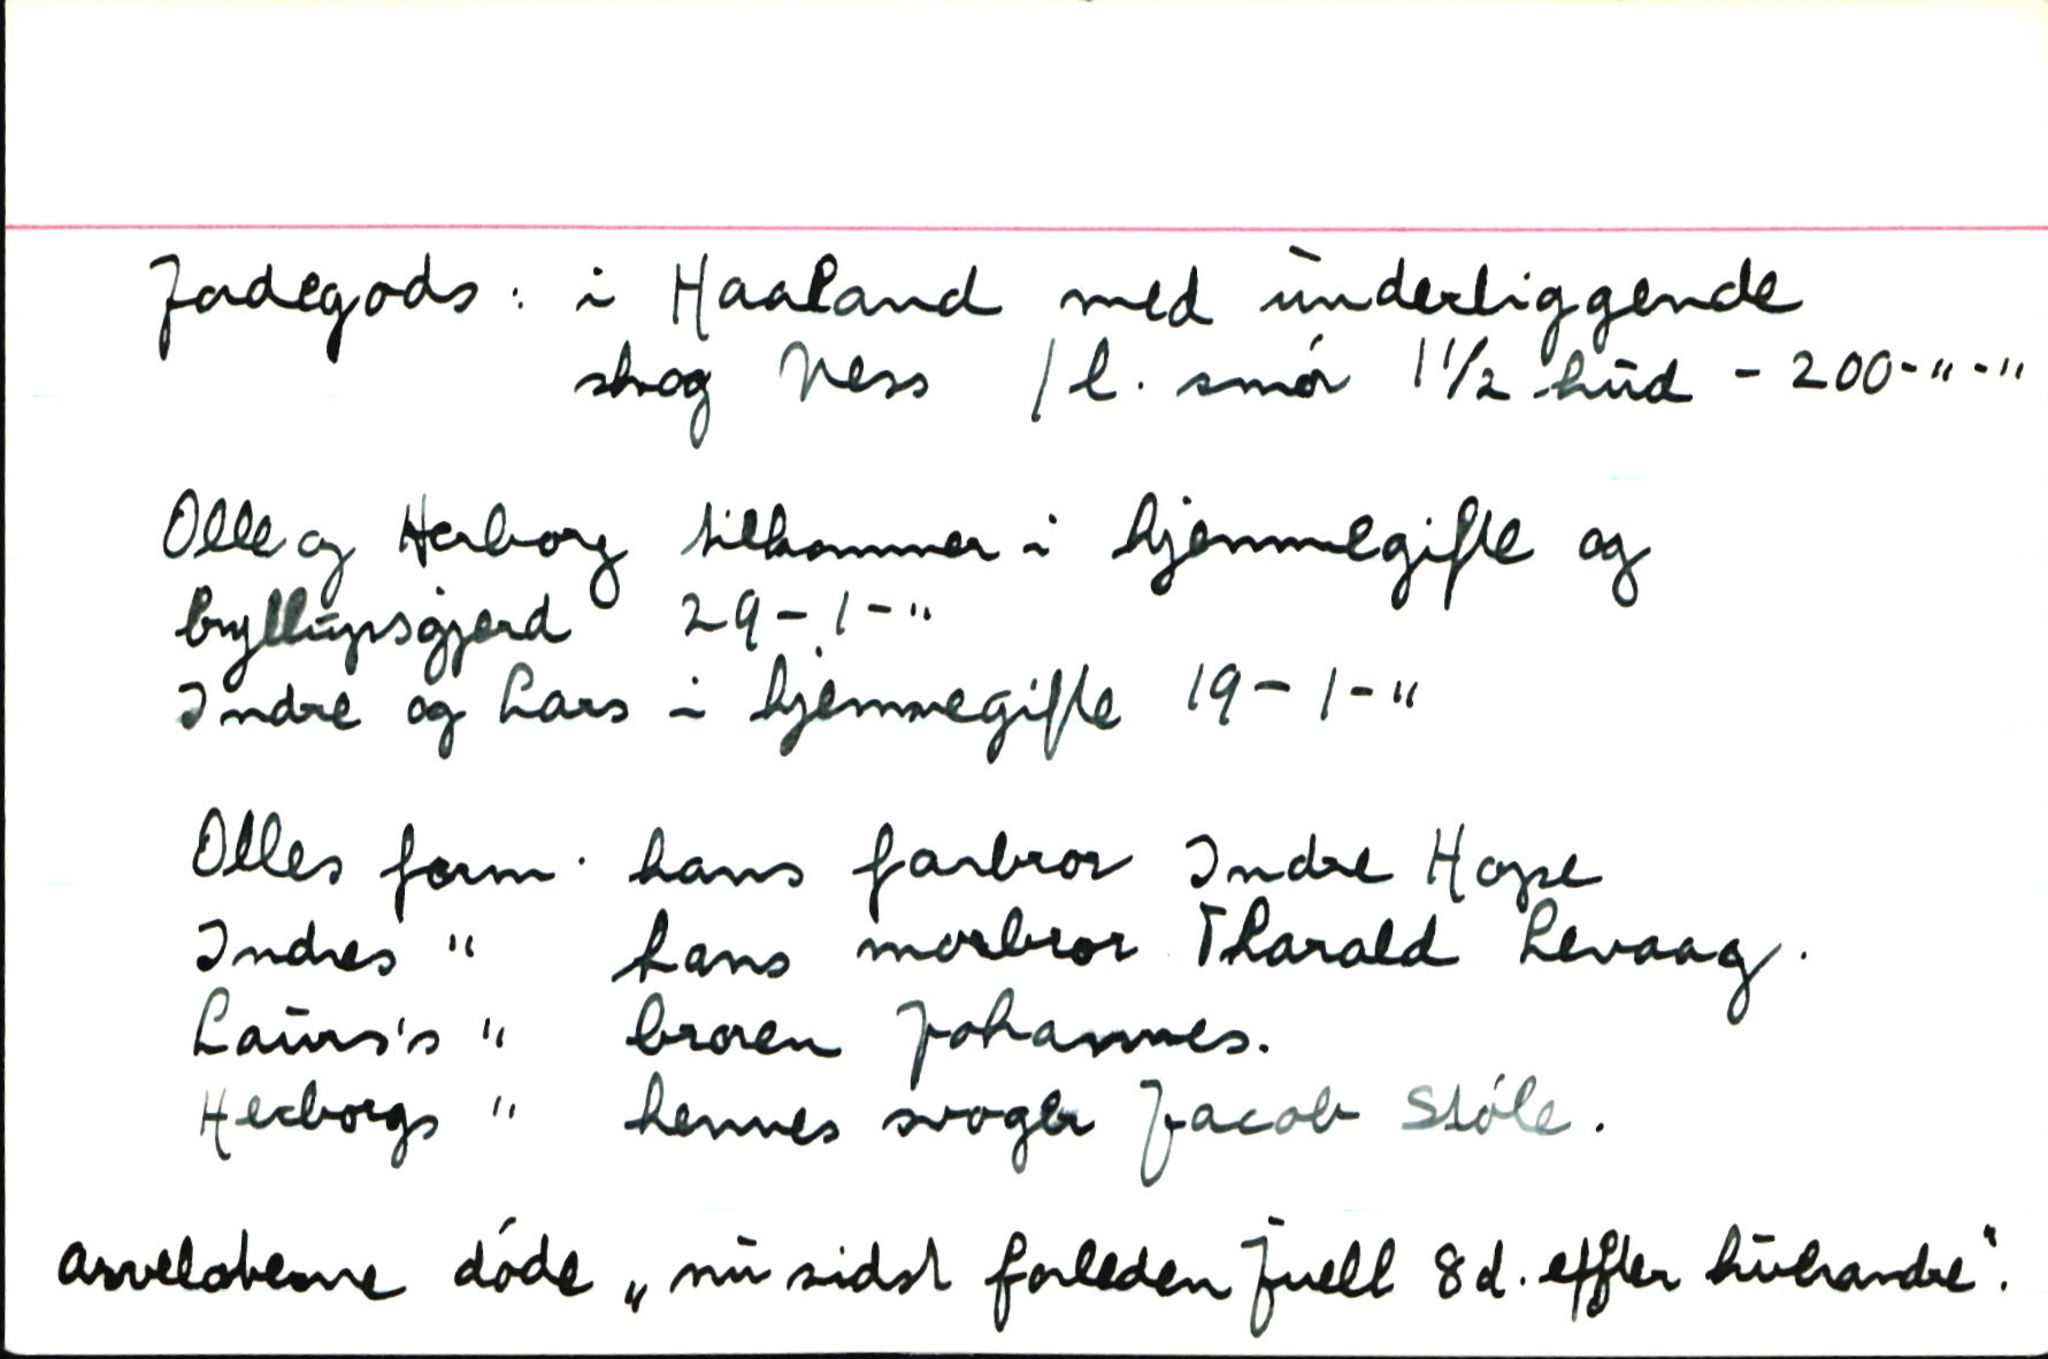 Jordegods: i Haaland med underliggende
skog Ness 1 l. smör 1 1/2 hud - 200-"-"
Olle og Herborg tilkommer i hjemmegifte og
bryllupsgjerd 29-1-"
Indre og Lars i hjemmegifte 19-1-"
Olles form. hans farbror Indre Hope
Indres " hans morbror Tharald Levaag.
Laurs's " broren Johannes.
Herborgs " hennes svoger Jacob Støle.
Arveloterne døde „nu sidst forleden Juell 8 d. effter hverandre".